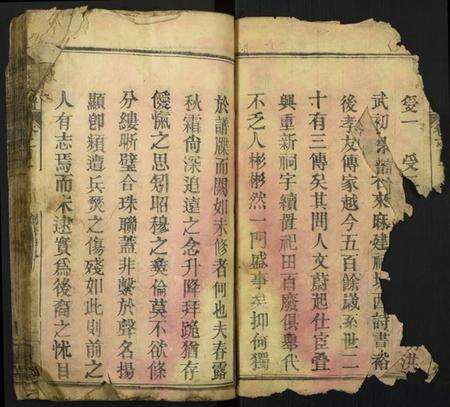 受一 受
武初 來麻建 西詩書裕
後孝友傳家越今五百餘歲系世二
十有三傳矣其間人文蔚起仕宦疊
興重新祠宇續置祀田百廢俱舉代
不乏人彬彬然一門盛事矣抑何獨
於譜牒而闕如未修者何也夫春露
秋霜尚深追遠之念升降拜跪猶存
僾愾之思矧昭穆之彞倫莫不欲條
分縷晰璧合珠聯蓋非繫於聲名揚
顯卽頻遭兵燹之傷殘如此則前之
人有志焉而未逮實爲後裔之怵目
洪